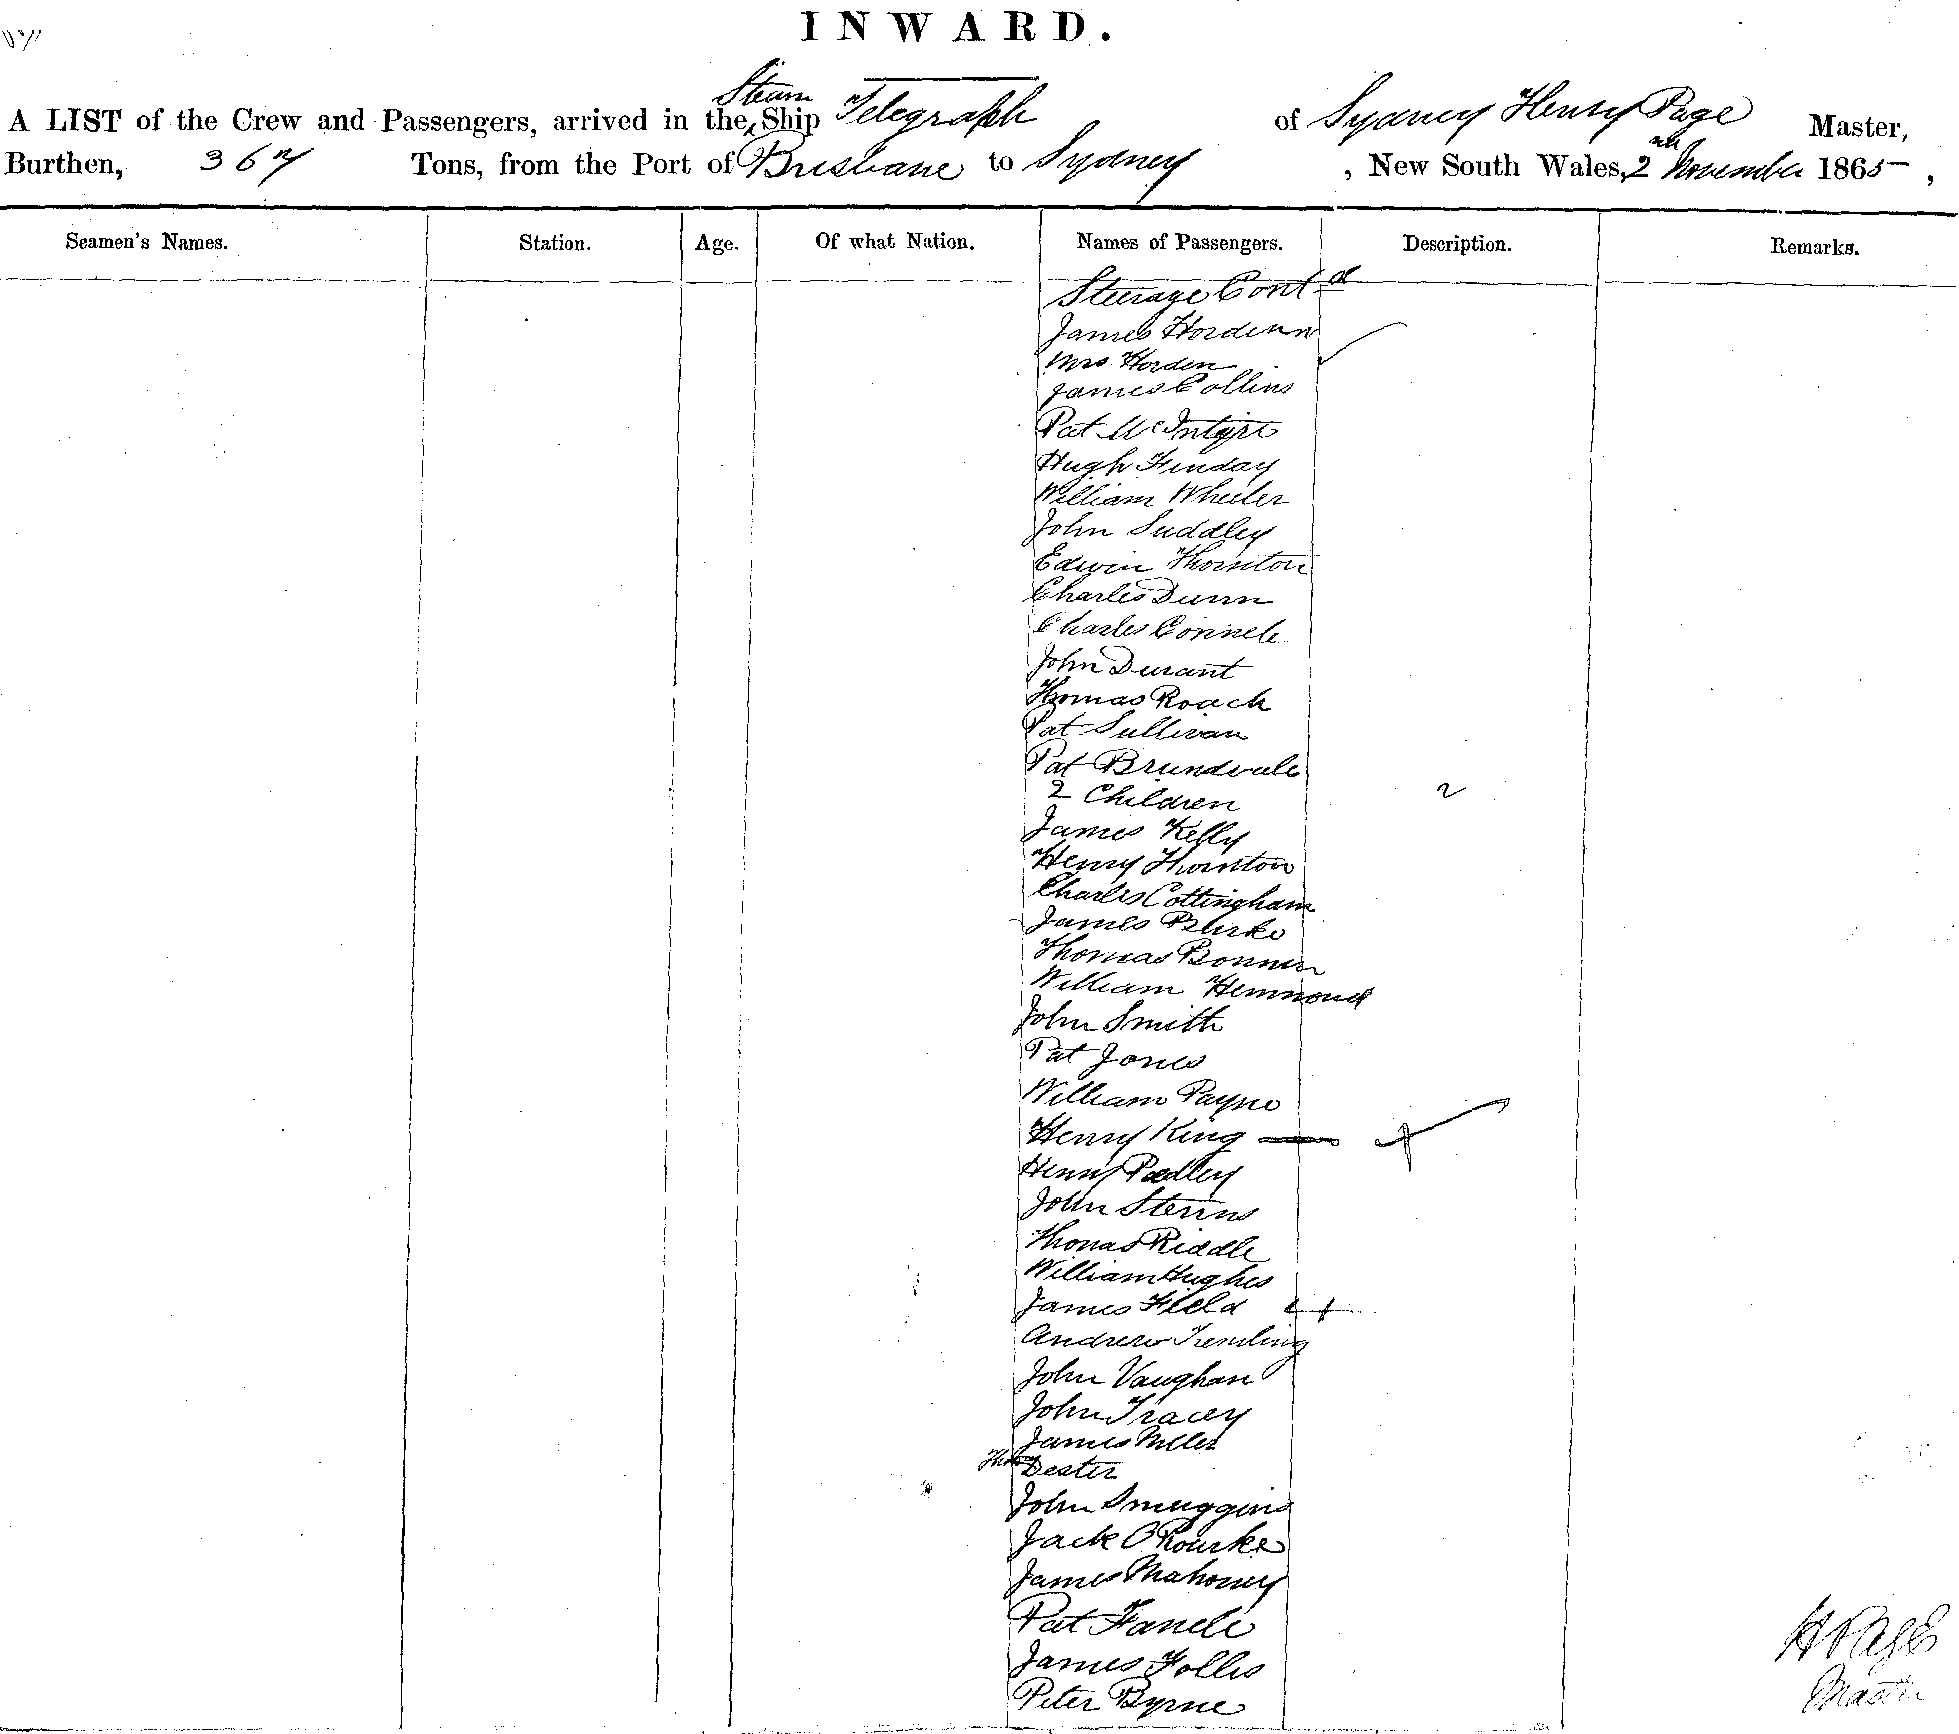 INWARD.
A LIST of the Crew and Passengers, arrived in the Steam Ship Telegraph of Sydney Henry Page Master,
Burthen, 367 Tons, from the Port of Brisbane to Sydney , New South Wales, 2nd November 1865 ,
Seamen's Names. Station. Age. Of what Nation. Names of Passengers. Description. Remarks.
Steerage Contd
James Hordenn
Mrs Horden
James Collins
Pat McIntyre
Hugh Finday
William Wheeler
John Suddley
Edwin Thornton
Charles Dunn
Charles Connele
John Durant
Thomas Roach
Pat Sullivan
Pat
2 Children 2
James Kelly
Henry Thornton
Charles Cottingham
James Burke
Thomas Bonner
William Hemmond
John Smith
Pat Jones
William Payne
Henry King
Henry Padley
John Sterns
Thomas Riddle
William Hughes
James Field
Andrew
John Vaughan
John Tracey
James Miller
Dexter
John Smuggins
Jack O'Rourke
James Mahoney
Pat
James Follis
Peter Byrne
H Page
Master